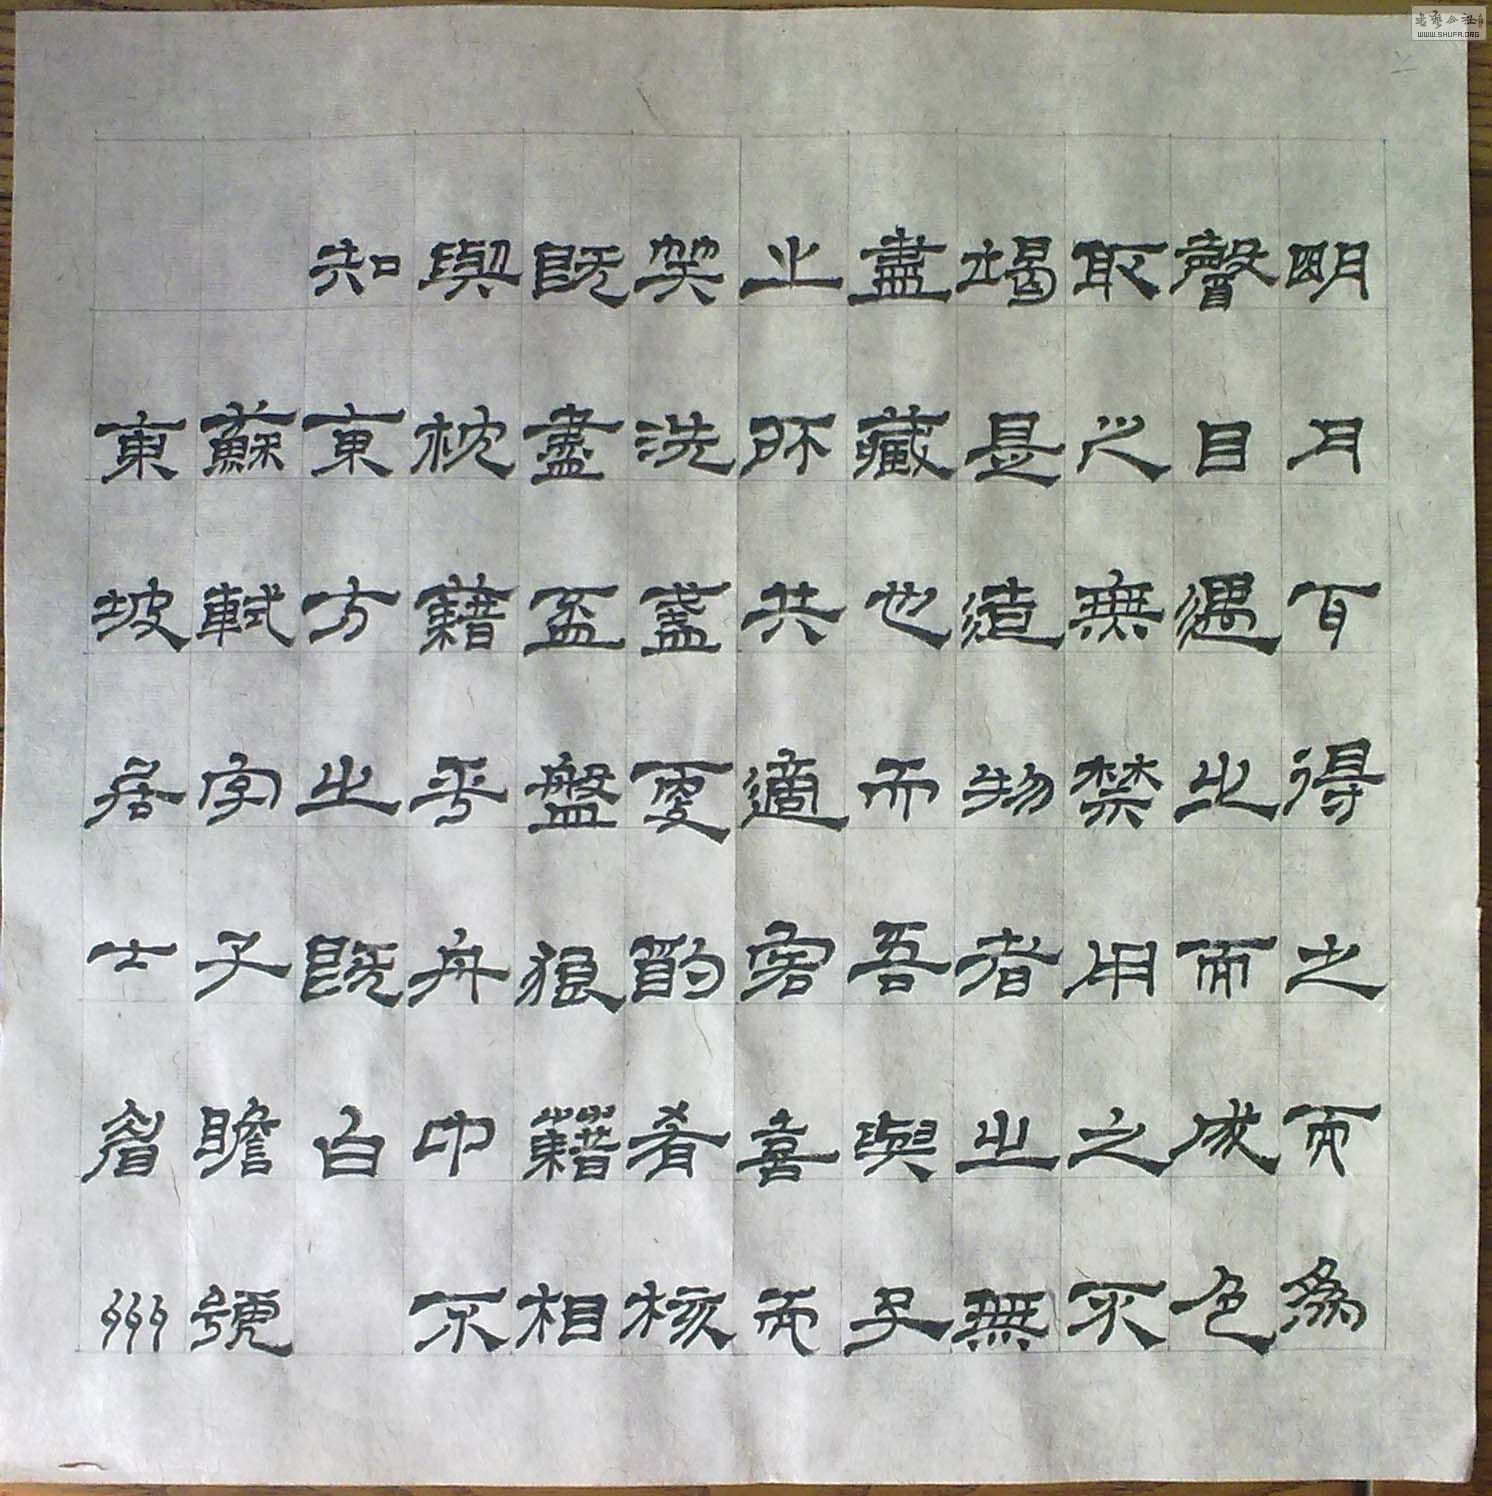 明月耳得之而為
聲目遇之而成色
取之無禁用之不
竭是造物者之無
盡藏也而吾與子
之所共適客喜而
笑洗盞更酌肴核
既盡盃盤狼籍相
與枕藉乎舟中不
知東方之既白
蘇軾字子瞻號
東坡居士眉州
書藝公社
WWW.SHUFA.ORG